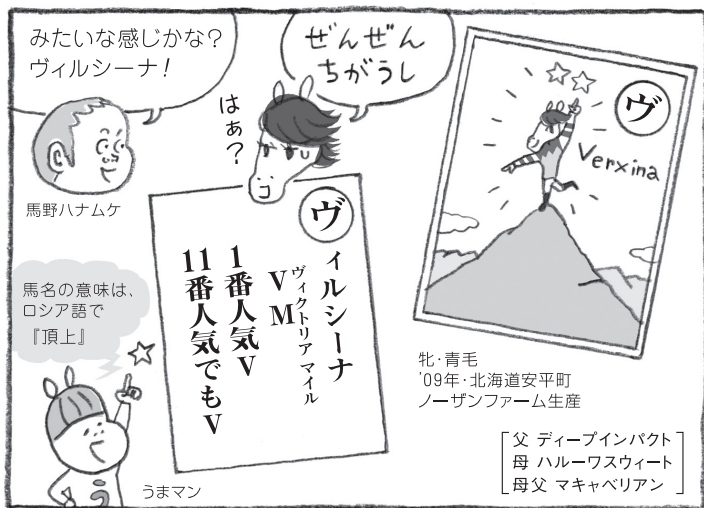 みたいな感じかな？
ヴィルシーナ！
ぜんぜん
ちがうし
はぁ？
馬野ハナムケ
ヴ
Verxina
ヴィルシーナ
ヴィクトリアマイル
VM
1番人気V
11番人気でもV
馬名の意味は、
ロシア語で
『頂上』
う
うまマン
牝・青毛
'09年・北海道安平町
ノーザンファーム生産
父 ディープインパクト
母 ハルーワスウィート
母父 マキャベリアン